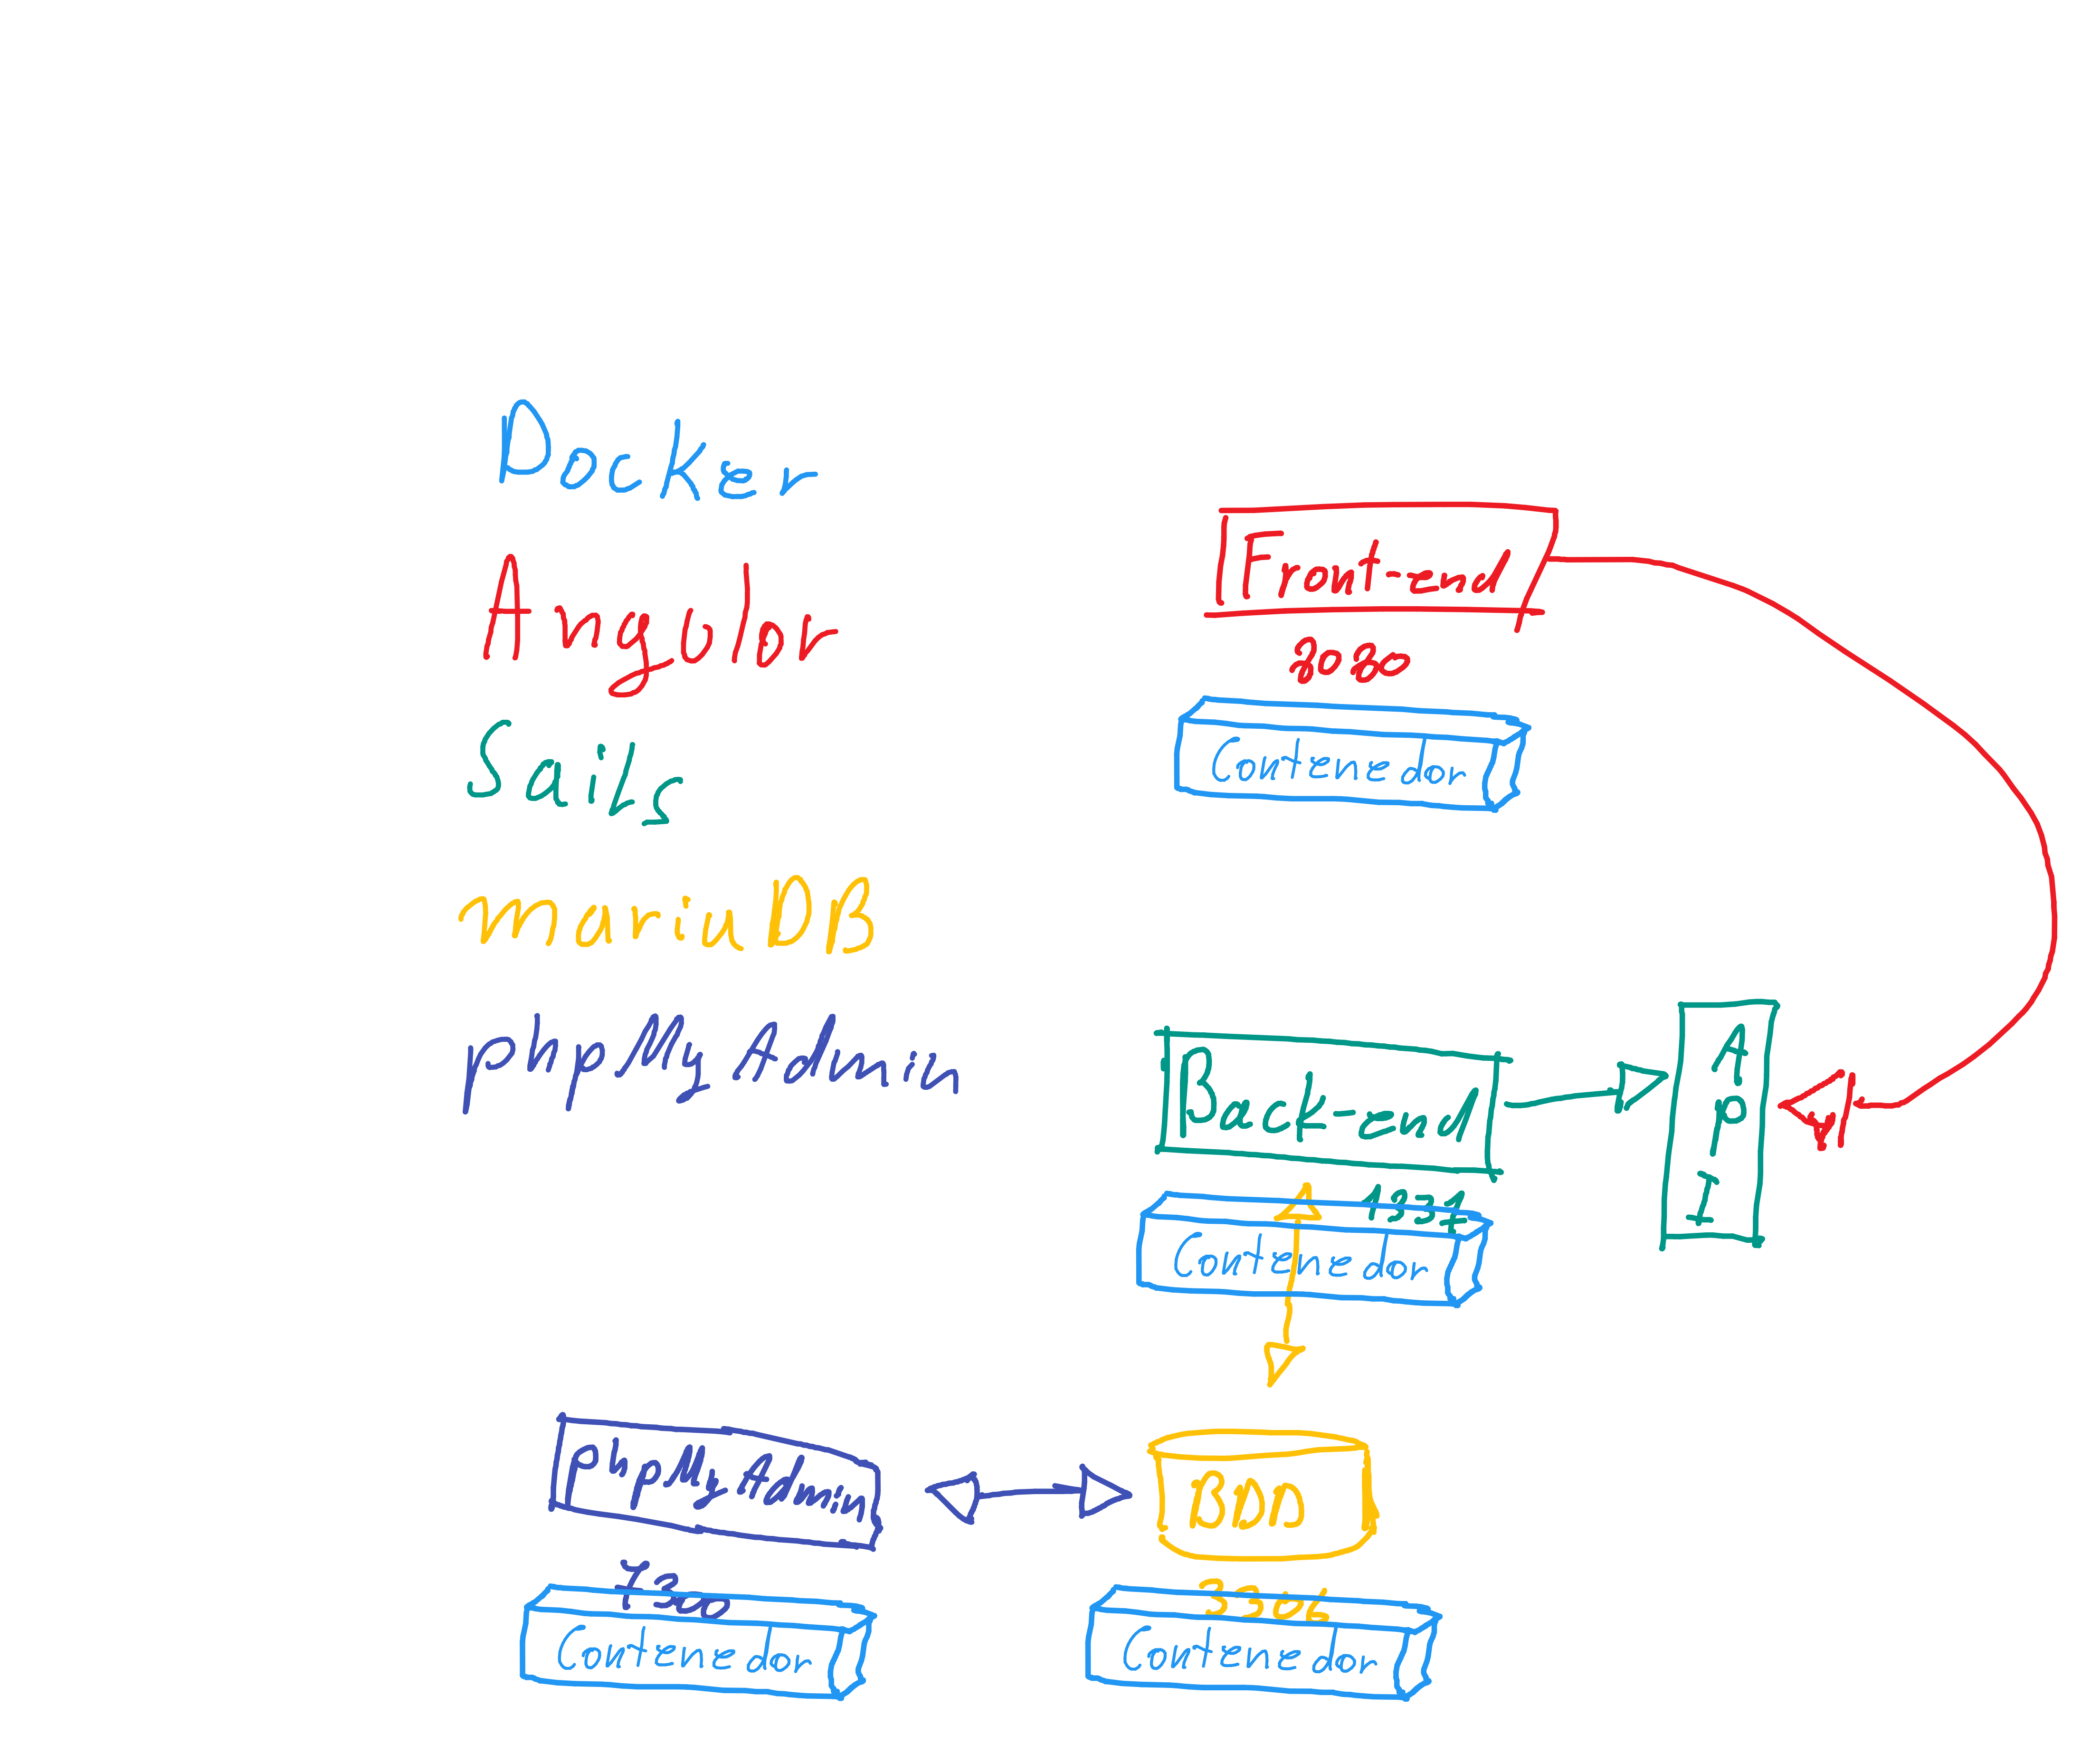 Docker
Angular
Sails
mariaDB
phpMyAdmin
Front-end
8080
Contenedor
Back-end
1337
Contenedor
API
phpMyAdmin
Contenedor
BDD
3306
Contenedor